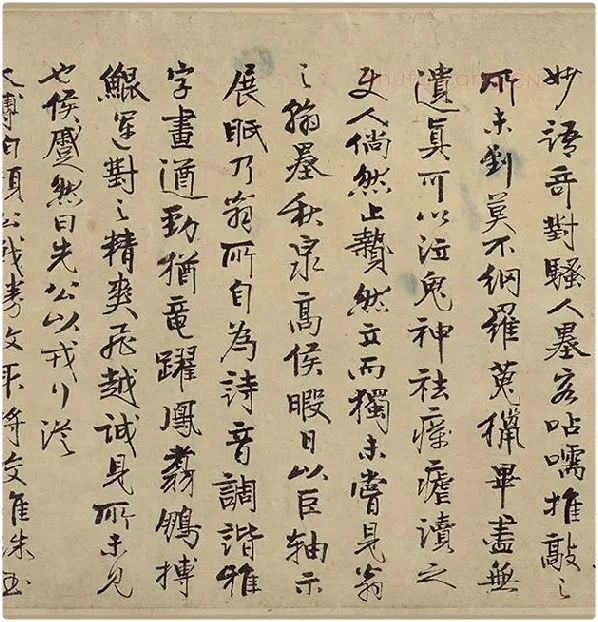 妙語奇對騷人墨客呫嚅推敲之
所未到莫不網羅蒐獵畢盡無
遺真可以泣鬼神祛瘧讀之
使人倘然止贄然立而獨未嘗見翁
之翰墨秋泉高侯暇日以巨軸示
展眡乃翁所自為詩音調諧雅
字畫遒勁猶竜躍鳳翥鵬摶
鯤運對之精爽飛越誠見所未見
也侯蹙然曰先公以戎行從
公戰